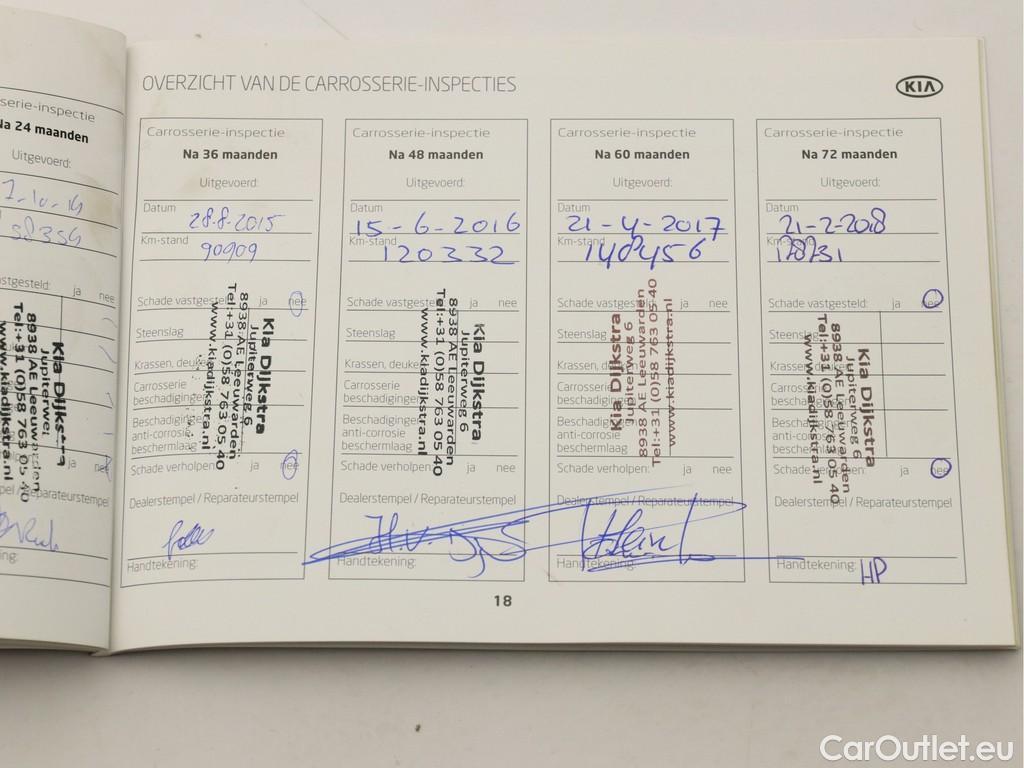 OVERZICHT VAN DE CARROSSERIE-INSPECTIES
KIA
serie-inspectie
Na 24 maanden
Uitgevoerd:
7-10-14
58354
astgesteld: ja nee
Kia Dijkstra
Jupiterweg
8938 AE Leeuwarden
Tel:+31 (0)58 763 05 40
www.kiadijkstra.nl
ja nee
pel / Reparateurstempel
ing:
Carrosserie-inspectie
Na 36 maanden
Uitgevoerd:
Datum
28-8-2015
Km-stand
90909
Schade vastgesteld: ja nee
Steenslag
Krassen, deuken
Carrosserie
beschadigingen
Beschadigingen
anti-corrosie
beschermlaag
Kia Dijkstra
Jupiterweg 6
8938 AE Leeuwarden
Tel:+31 (0)58 763 05 40
www.kiadijkstra.nl
Schade verholpen: ja nee
Dealerstempel / Reparateurstempel
Handtekening:
Carrosserie-inspectie
Na 48 maanden
Uitgevoerd:
Datum
15-6-2016
Km-stand
120332
Schade vastgesteld: ja nee
Steenslag
Krassen, deuken
Carrosserie
beschadigingen
Beschadigingen
anti-corrosie
beschermlaag
Kia Dijkstra
Jupiterweg 6
8938 AE Leeuwarden
Tel:+31 (0)58 763 05 40
www.kiadijkstra.nl
Schade verholpen: ja nee
Dealerstempel / Reparateurstempel
Handtekening:
Carrosserie-inspectie
Na 60 maanden
Uitgevoerd:
Datum
21-4-2017
Km-stand
148456
Schade vastgesteld: ja nee
Steenslag
Krassen, deuken
Carrosserie
beschadigingen
Beschadigingen
anti-corrosie
beschermlaag
Kia Dijkstra
Jupiterweg 6
8938 AE Leeuwarden
Tel:+31 (0)58 763 05 40
www.kiadijkstra.nl
Schade verholpen: ja nee
Dealerstempel / Reparateurstempel
Handtekening:
Carrosserie-inspectie
Na 72 maanden
Uitgevoerd:
Datum
21-2-2018
Km-stand
178731
Schade vastgesteld: ja nee
Steenslag
Krassen, deuken
Carrosserie
beschadigingen
Beschadigingen
anti-corrosie
beschermlaag
Kia Dijkstra
Jupiterweg 6
8938 AE Leeuwarden
Tel:+31 (0)58 763 05 40
www.kiadijkstra.nl
Schade verholpen: ja nee
Dealerstempel / Reparateurstempel
Handtekening:
HP
18
CarOutlet.eu